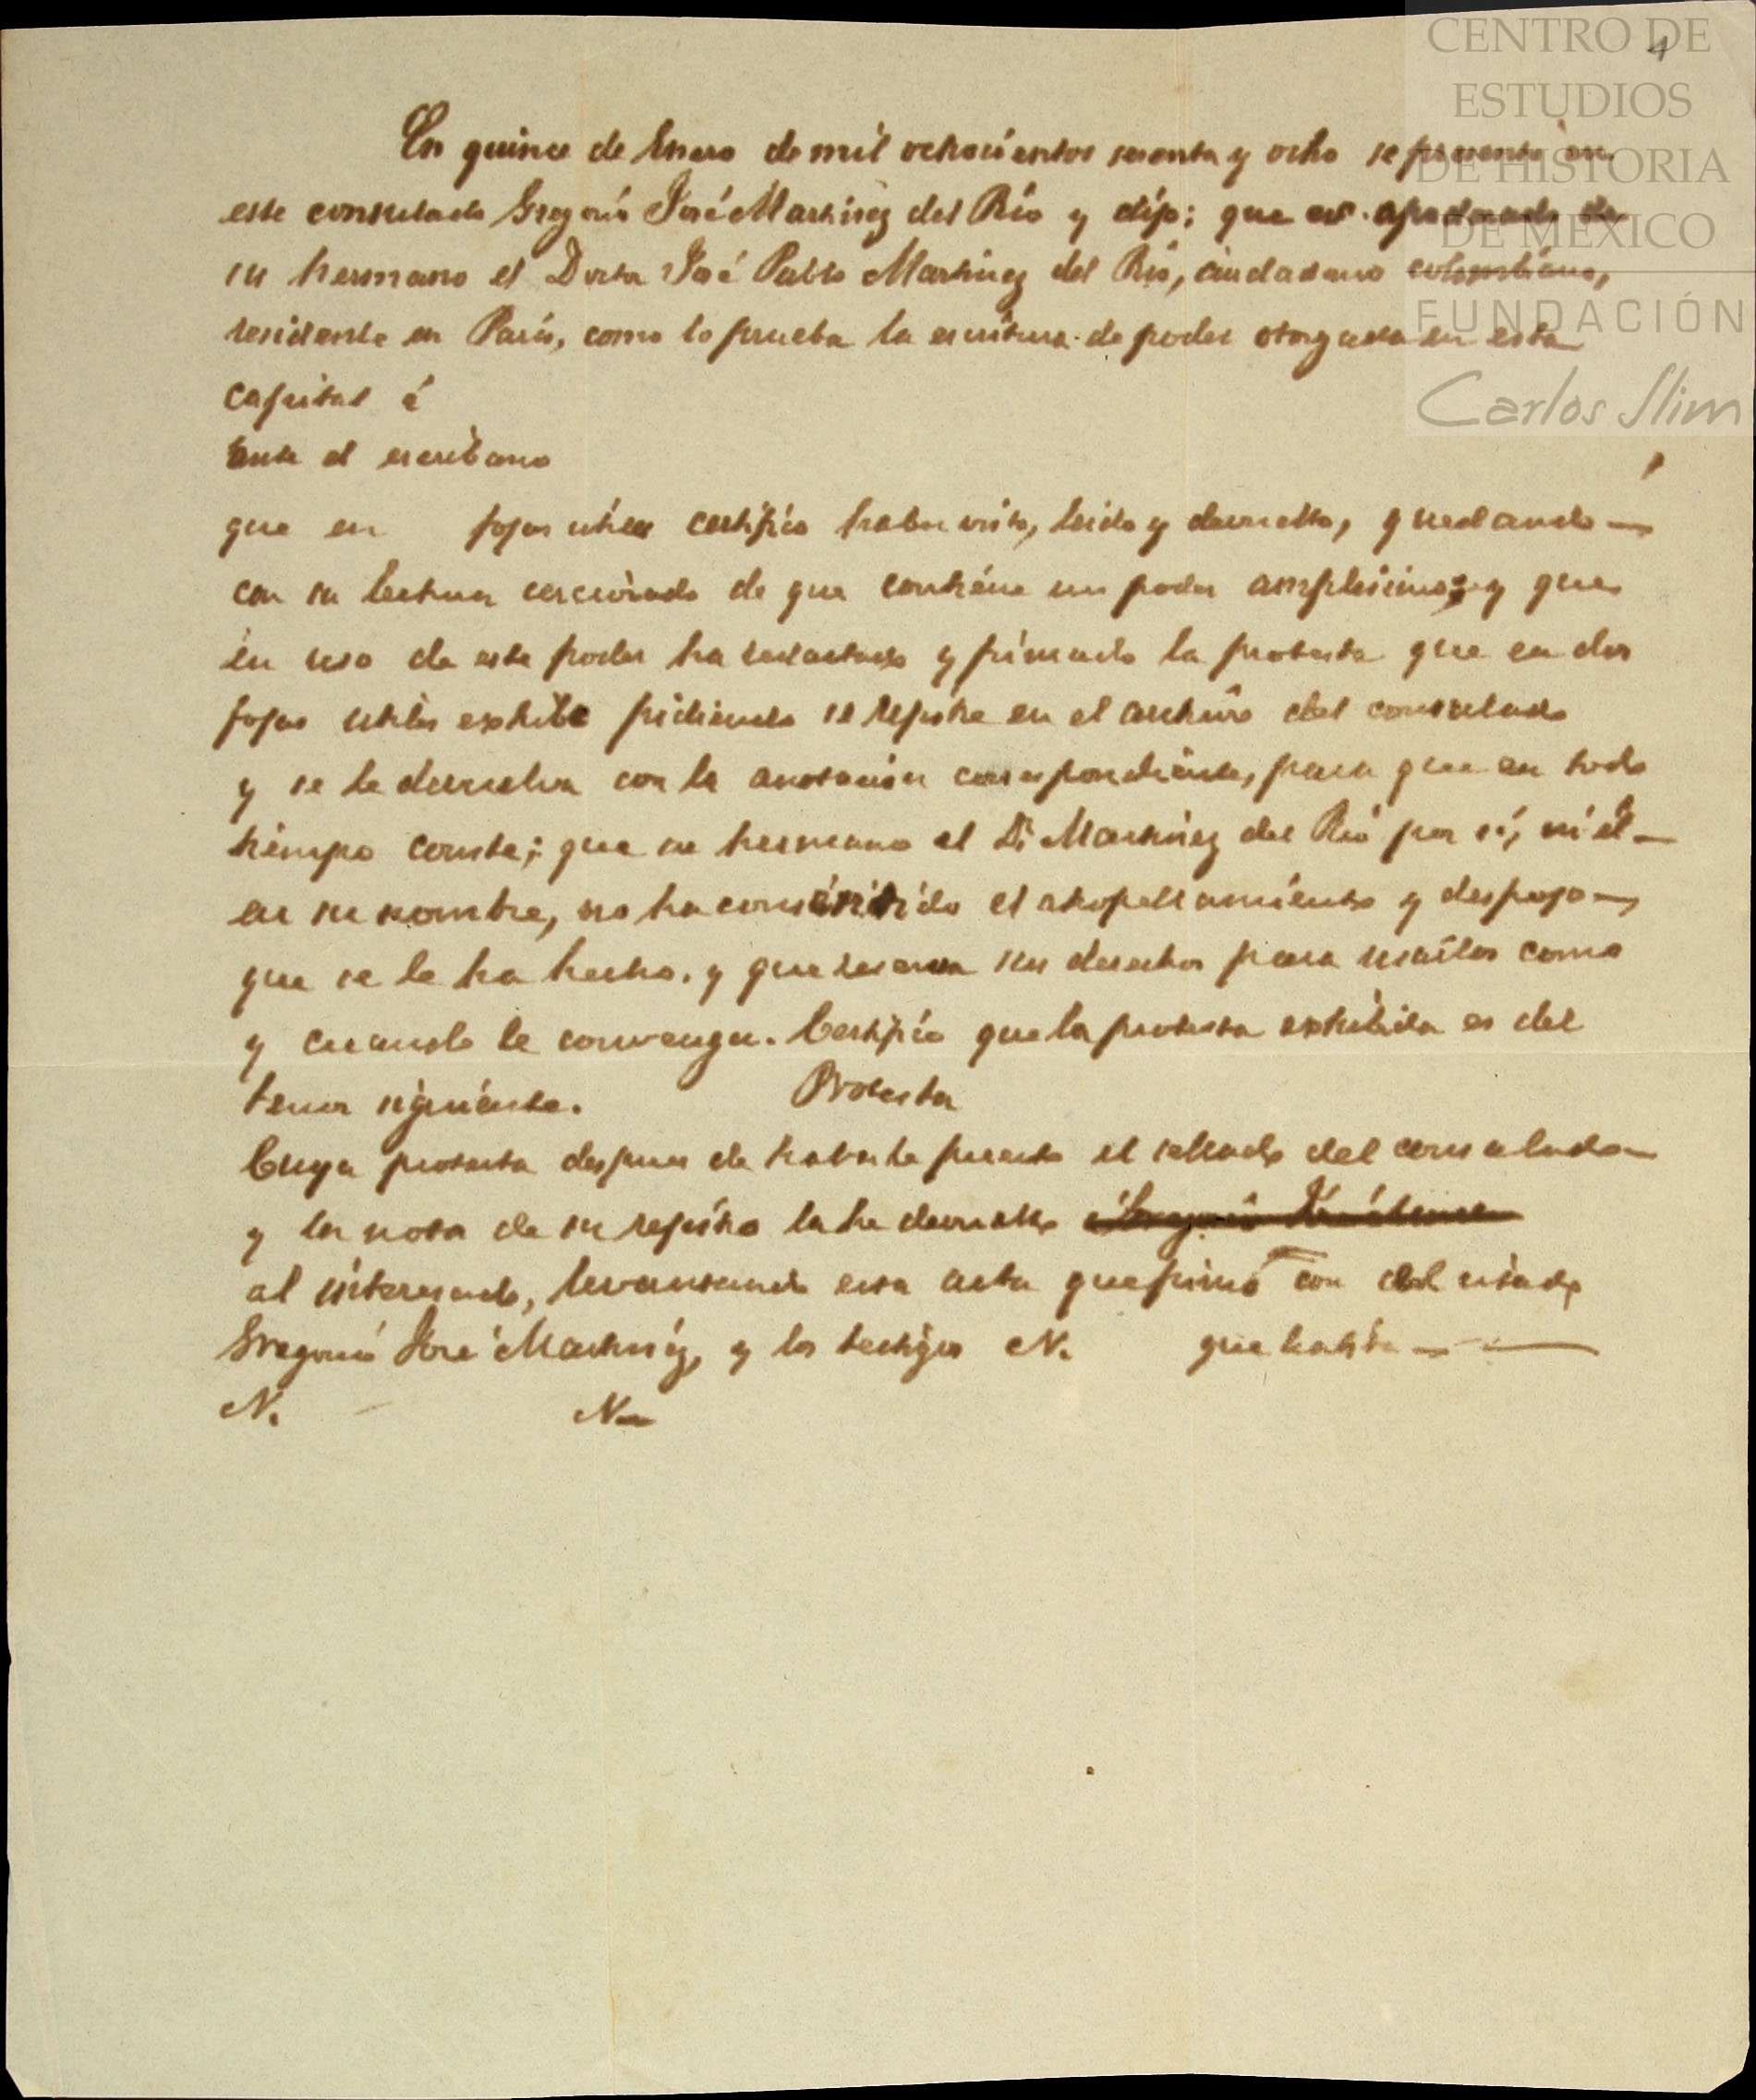 4
CENTRO DE
ESTUDIOS
DE HISTORIA
DE MÉXICO
FUNDACIÓN
Carlos Slim
En quince de Enero de mil ochocientos sesenta y ocho se presentó en
este consulado Gregorio José Martinez del Rio y dijo; que es apoderado de
su hermano el Doctor José Pablo Martinez del Rio, ciudadano colombiano,
residente en Paris, como lo prueba la escritura de poder otorgada en esta
capital á
ante el escribano
que en fojas utiles certifico haber visto, leido y devuelto, quedando
con su lectura cerciorado de que contiene un poder amplisimo; y que
en uso de este poder ha redactado y firmado la protesta que en dos
fojas utiles exhibe pidiendo se registre en el archivo del consulado
y se le devuelva con la anotacion correspondiente, para que en todo
tiempo conste; que su hermano el Dr Martinez del Rio por sí, ni él
en su nombre, no ha consentido el atropellamiento y despojo
que se le ha hecho. y que reserva sus derechos para usarlos como
y cuando le convenga. Certifico que la protesta exhibida es del
tenor siguiente. Protesta
Cuya protesta despues de haberle puesto el sellado del consulado
y la nota de su registro la he devuelto
al interesado, levantando esta acta que firmó con el citado
Gregorio José Martinez, y los testigos N. que habita
N. N.